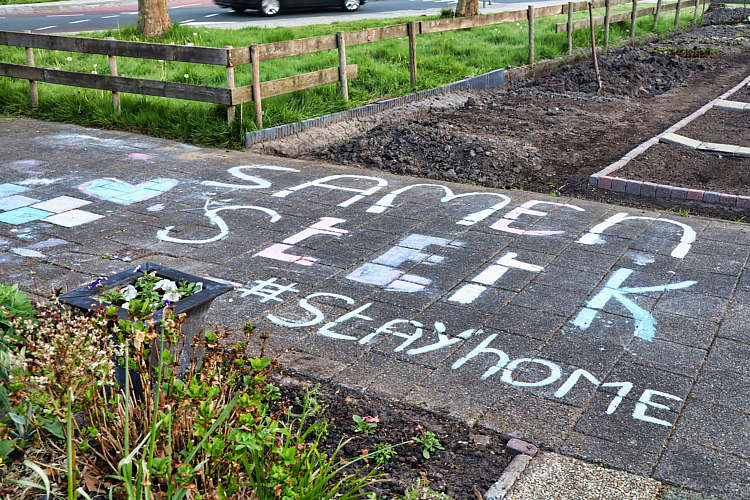 SAMEN
StErK
#StayhoME